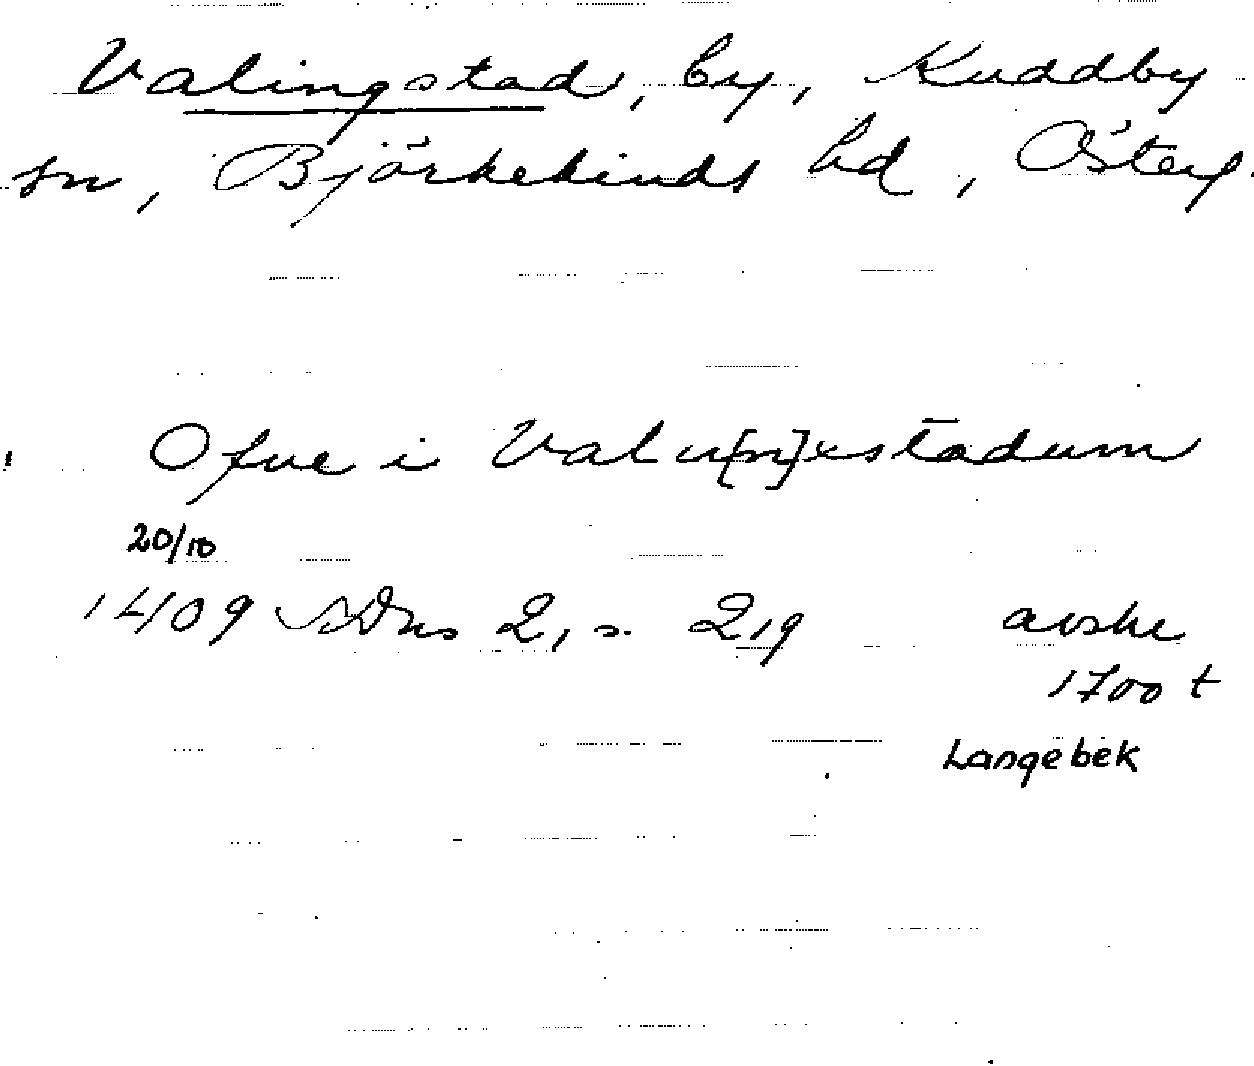 Valingstad, by, Kuddby
sn, Björkekinds hd, Österg.
Ofue i Valu[n]xstadum
20/10
1409 SDns 2, s. 219 avskr
1700 t
Langebek